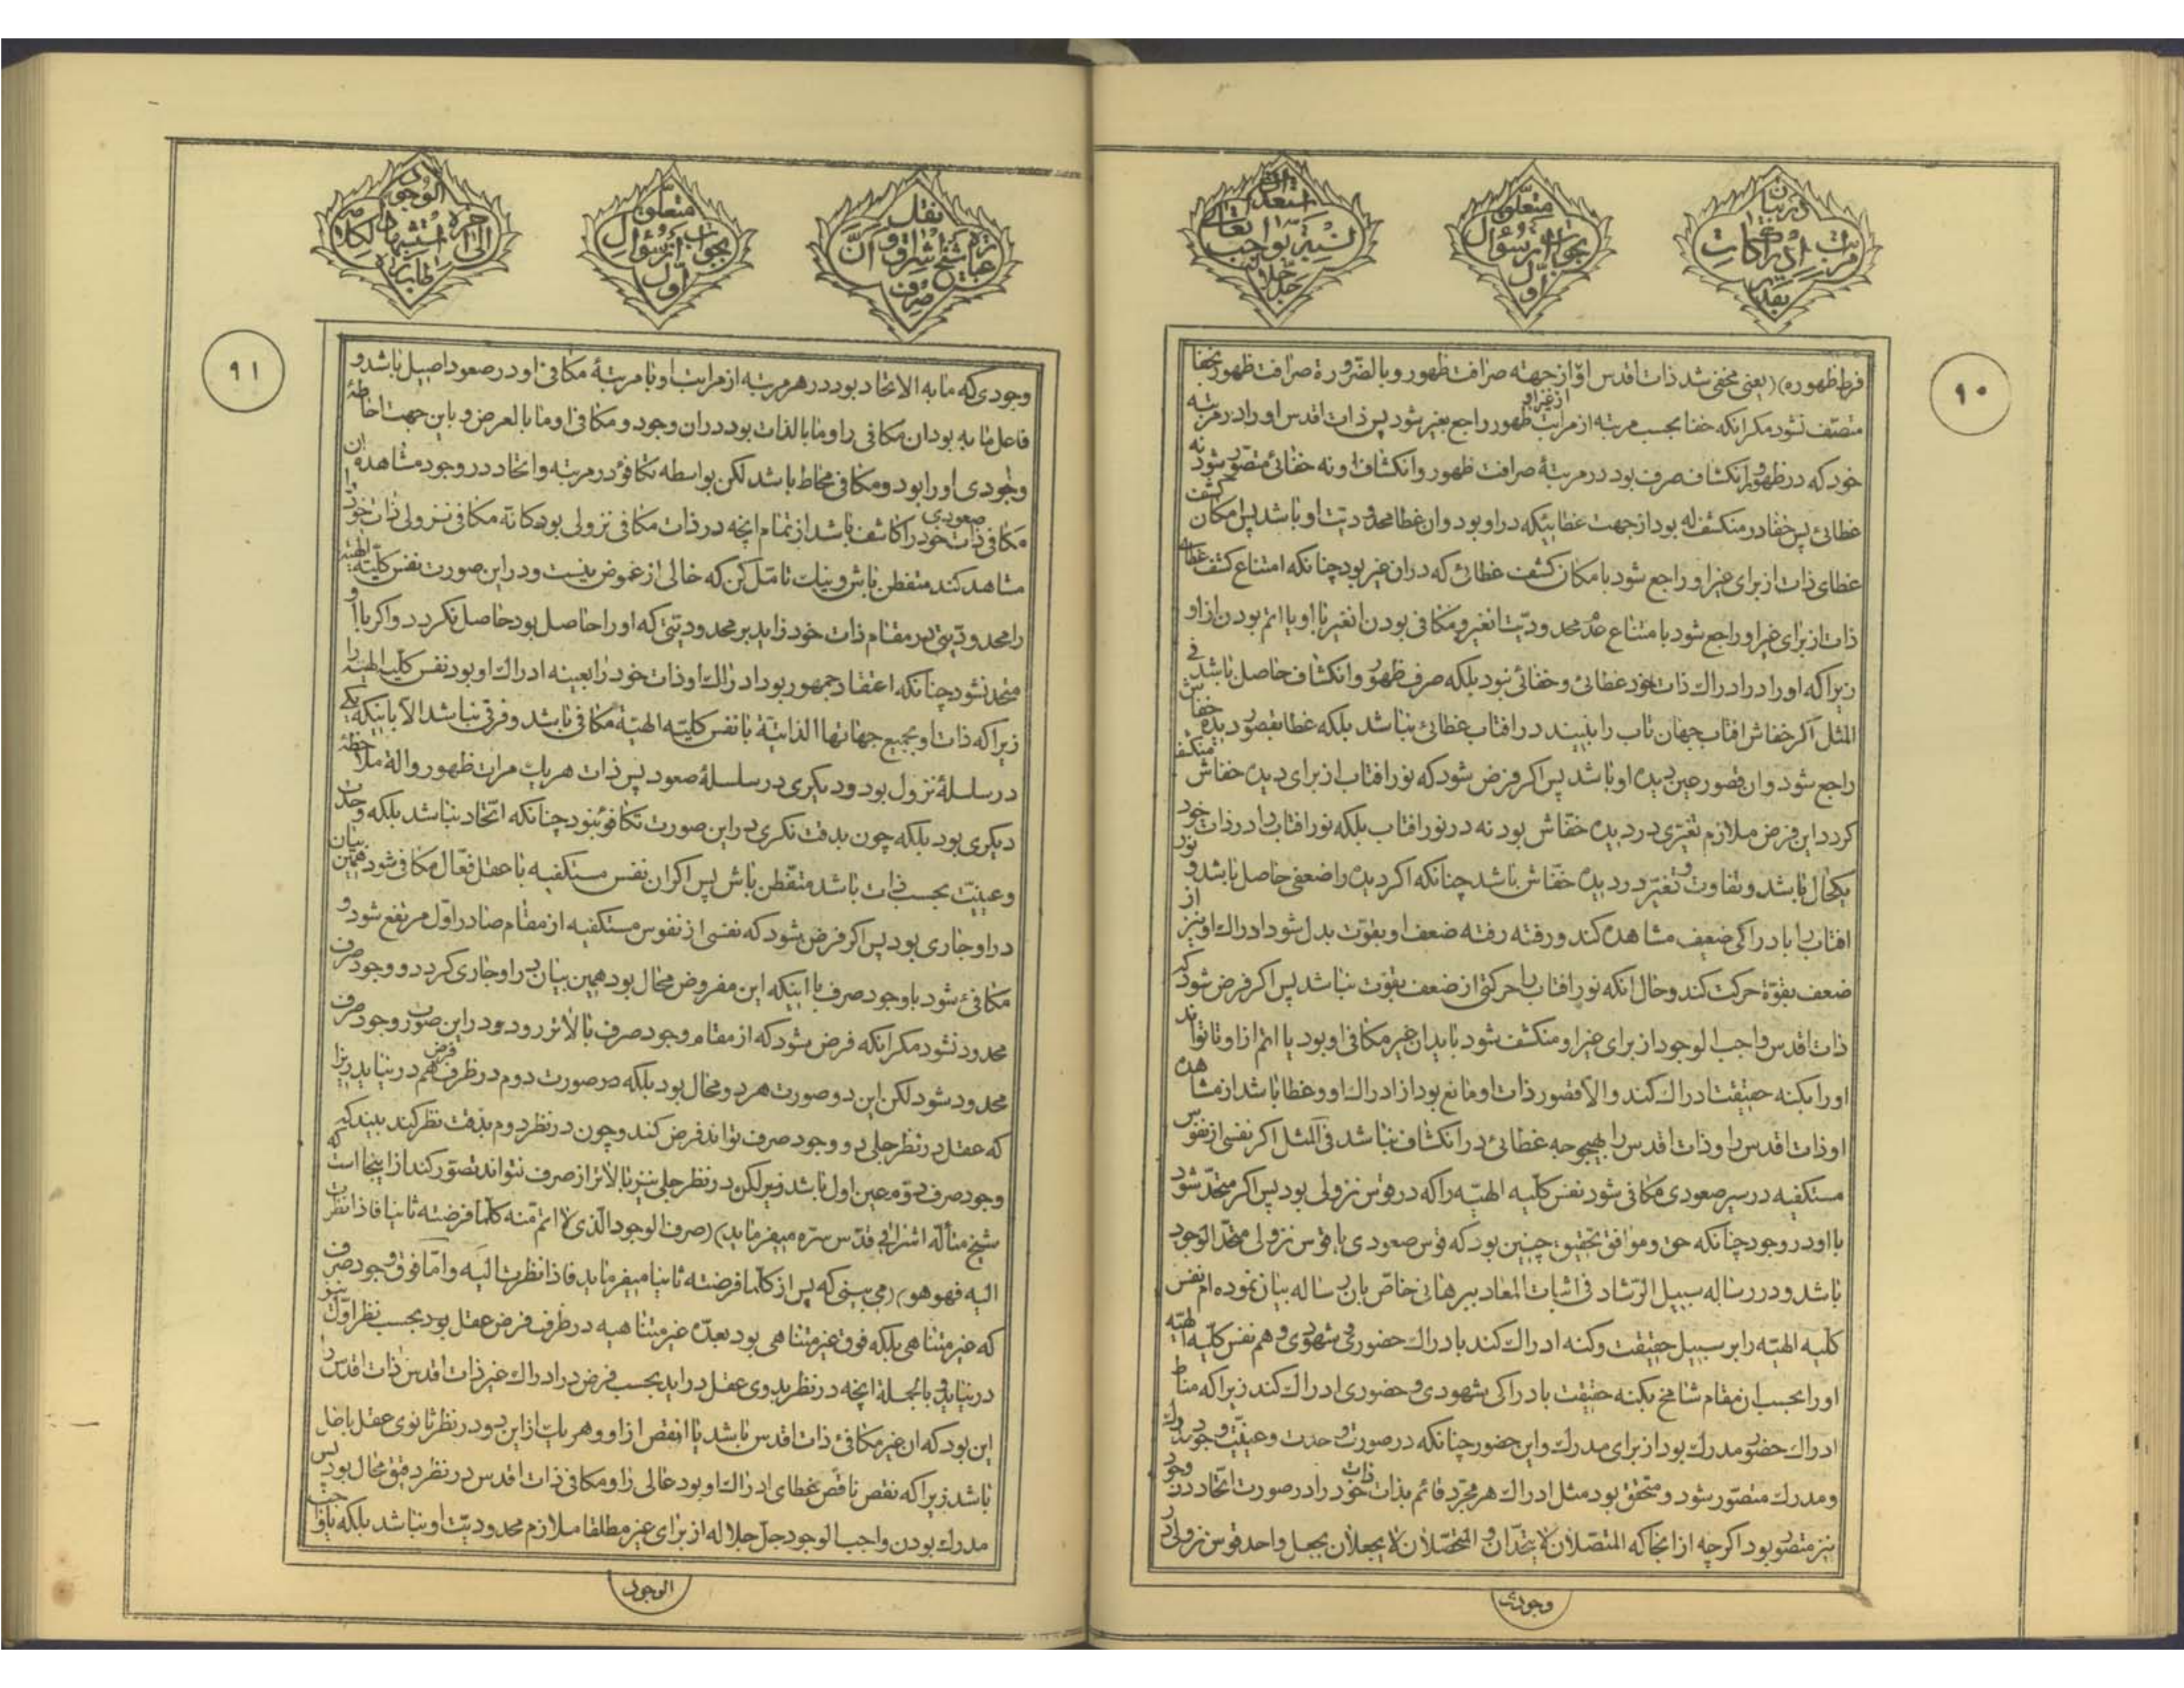 در بیان
مراتب ادراکات
بقدر
متعلق
بجواب از سؤال
اول
استعداد
نسبة بواجب تعالی
جل جلاله
۹۰
فرط ظهوره) (یعنی مخفی شد ذات اقدس او از جهته صرافت ظهور و بالضرورة صرافت ظهور بخفا
متصف نشود مکر انکه خفا بحسب مرتبه از مراتب ظهور راجع بغیر شود پس ذات اقدس او را در مرتبه
خود که در ظهور و انکشاف صرف بود در مرتبۀ صرافت ظهور و انکشاف او نه خفائی متصور شود نه
غطائی پس خفا در منکشف له بود از جهت غطائیکه در او بود و ان غطا محدودیت او باشد پس امکان کشف
غطای ذات از برای غیر او راجع شود بامکان کشف غطائی که در ان غیر بود چنانکه امتناع کشف غطای
ذات از برای غیر او راجع شود بامتناع عدم محدودیت انغیر و مکافی بودن انغیر با او یا اتم بودن از او
زیرا که او را در ادراک ذات خود غطائی و خفائی نبود بلکه صرف ظهور و انکشاف حاصل باشد فی
المثل اکر خفاش افتاب جهان تاب را نبیند در افتاب غطائی نباشد بلکه غطا بقصور دیده خفاش
راجع شود و ان قصور عین دیده او باشد پس اکر فرض شود که نور افتاب از برای دیده خفاش منکشف
کردد این فرض ملازم تغیری در دیده خفاش بود نه در نور افتاب بلکه نور افتاب را در ذات خود
یکحال باشد و تفاوت و تغیر در دیده خفاش باشد چنانکه اکر دیده را ضعفی حاصل باشد و نور
افتاب را بادراکی ضعیف مشاهده کند و رفته رفته ضعف او بقوت بدل شود ادراک او نیز از
ضعف بقوة حرکت کند و حال انکه نور افتاب را حرکتی از ضعف بقوت نباشد پس اکر فرض شود که
ذات اقدس واجب الوجود از برای غیر او منکشف شود باید ان غیر مکافی او بود یا اتم از او تا تواند
او را بکنه حقیقت ادراک کند و الا قصور ذات او مانع بود از ادراک او و غطا باشد از مشاهده
او ذات اقدس را و ذات اقدس را بهیچوجه غطائی در انکشاف نباشد فی المثل اکر نفسی از نفوس
مستکفیه در سیر صعودی مکافی شود نفس کلیه الهیه را که در قوس نزولی بود پس اکر متحد شود
با او در وجود چنانکه حق و موافق تحقیق چنین بود که قوس صعودی با قوس نزولی متحد الوجود
باشد و در رساله سبیل الرشاد فی اثبات المعاد ببرهانی خاص بان رساله بیان نموده ام نفس
کلیه الهیه را بر سبیل حقیقت و کنه ادراک کند بادراک حضوری و شهودی و هم نفس کلیه الهیه
او را بحسب ان مقام شامخ بکنه حقیقت بادراکی شهودی و حضوری ادراک کند زیرا که مناط
ادراک حضور مدرک بود از برای مدرک و این حضور چنانکه در صورت وحدت و عینیت وجود مدرک
و مدرک متصور شود و متحقق بود مثل ادراک هر مجرد قائم بذات ذات خود را در صورت اتحاد در وجود
نیز متصور بود اکرچه از انجا که المتصلان لا یتحدان و المتحصلان لا یجعلان بجعل واحد قوس نزولی در
وجودی
نقل
عبارة شیخ اشراق و ان
صرف
متعلق
بجواب از سؤال
اول
الوجود
الی اخره و استشهاد لکلامه
۹۱
وجودی که ما به الاتحاد بود در هر مرتبه از مراتب او با مرتبۀ مکافی او در صعود اصیل باشد و
فاعل ما به بود ان مکافی را و ما بالذات بود در ان وجود و مکافی او ما بالعرض و باین جهت احاطۀ
وجودی او را بود و مکافی محاط باشد لکن بواسطه تکافؤ در مرتبه و اتحاد در وجود مشاهده ان
مکافی صعودی ذات خود را کاشف باشد از تمام انچه در ذات مکافی نزولی بود کانه مکافی نزولی ذات خود را
مشاهد کند متفطن باش و نیک تامل کن که خالی از غموض نیست و در این صورت نفس کلیۀ الهیه
را محدودیتی در مقام ذات خود زاید بر محدودیتی که او را حاصل بود حاصل نکردد و اکر با او
متحد نشود چنانکه اعتقاد جمهور بود ادراک او ذات خود را بعینه ادراک او بود نفس کلیه الهیه را
زیرا که ذات او بجمیع جهاتها الذاتیة با نفس کلیه الهیة مکافی باشد و فرقی نباشد الا باینکه یکی
در سلسلۀ نزول بود و دیکری در سلسلۀ صعود پس ذات هر یک مرات ظهور و الۀ ملاحظۀ
دیکری بود بلکه چون بدقت نکری در این صورت تکافؤ نبود چنانکه اتحاد نباشد بلکه وحدت
و عینیت بحسب ذات باشد متفطن باش پس اکر ان نفس مستکفیه با عقل فعال مکافی شود همین بیان
در او جاری بود پس اکر فرض شود که نفسی از نفوس مستکفیه از مقام صادر اول مرتفع شود و
مکافئ شود با وجود صرف با اینکه این مفروض محال بود همین بیان در او جاری کردد و وجود صرف
محدود نشود مکر انکه فرض شود که از مقام وجود صرف بالاتر رود و در این صورت وجود صرف
محدود شود لکن این دو صورت هر دو محال بود بلکه در صورت دوم در ظرف فرض هم در نیاید زیرا
که عقل در نظر جلی دو وجود صرف تواند فرض کند و چون در نظر دوم بدقت نظر کند بیند که
وجود صرف دوم عین اول باشد زیر لکن در نظر جلی نیز بالاتر از صرف نتواند تصور کند از اینجا است که
شیخ متأله اشراقی قدس سره میفرماید) (صرف الوجود الذی لا اتم منه کلما فرضته ثانیا فاذا نظرت
الیه فهو هو) (می بینی که پس از کلما فرضته ثانیا میفرماید فاذا نظرت الیه و اما فوق وجود صرف
که غیر متناهی بلکه فوق غیر متناهی بود بعدۀ غیر متناهیه در ظرف فرض عقل بود بحسب نظر اول نیز
در نیاید و بالجملة انچه در نظر بدوی عقل در اید بحسب فرض در ادراک غیر ذات اقدس ذات اقدس را
این بود که ان غیر مکافئ ذات اقدس باشد یا انقص از او و هر یک از این دو در نظر ثانوی عقل باطل
باشد زیرا که نقص ناقص غطای ادراک او بود عالی را و مکافی ذات اقدس در نظر دقیق محال بود پس
مدرک بودن واجب الوجود جل جلاله از برای غیر مطلقا ملازم محدودیت او نباشد بلکه با واجب
الوجود